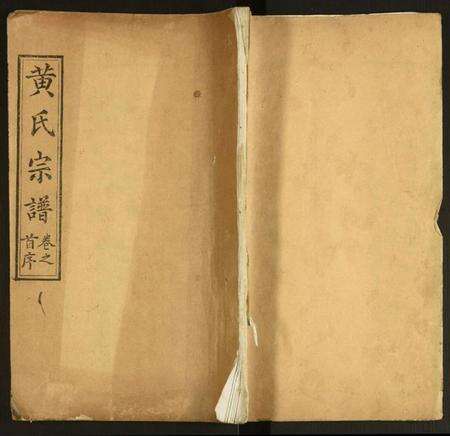 黄氏宗譜
卷之
首序